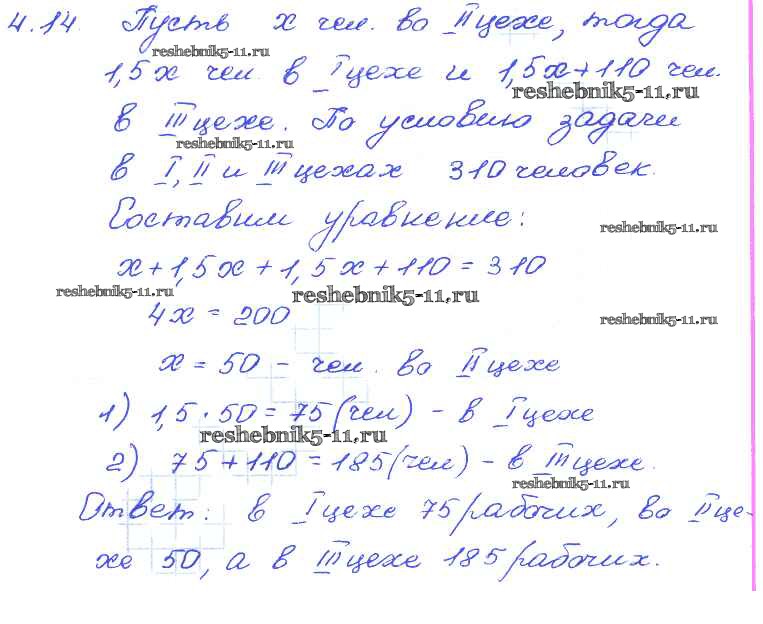 4.14 Пусть x чел. во II цехе, тогда
reshebnik5-11.ru
1,5x чел. в I цехе и 1,5x+110 чел.
reshebnik5-11.ru
в III цехе. По условию задачи
reshebnik5-11.ru
в I, II и III цехах 310 человек.
Составим уравнение:
reshebnik5-11.ru
x+1,5x+1,5x+110=310
reshebnik5-11.ru
reshebnik5-11.ru
4x = 200
reshebnik5-11.ru
x = 50 - чел. во II цехе
1) 1,5·50=75(чел) - в I цехе
reshebnik5-11.ru
2) 75+110=185(чел) - в III цехе.
reshebnik5-11.ru
Ответ: в I цехе 75 рабочих, во II це-
хе 50, а в III цехе 185 рабочих.